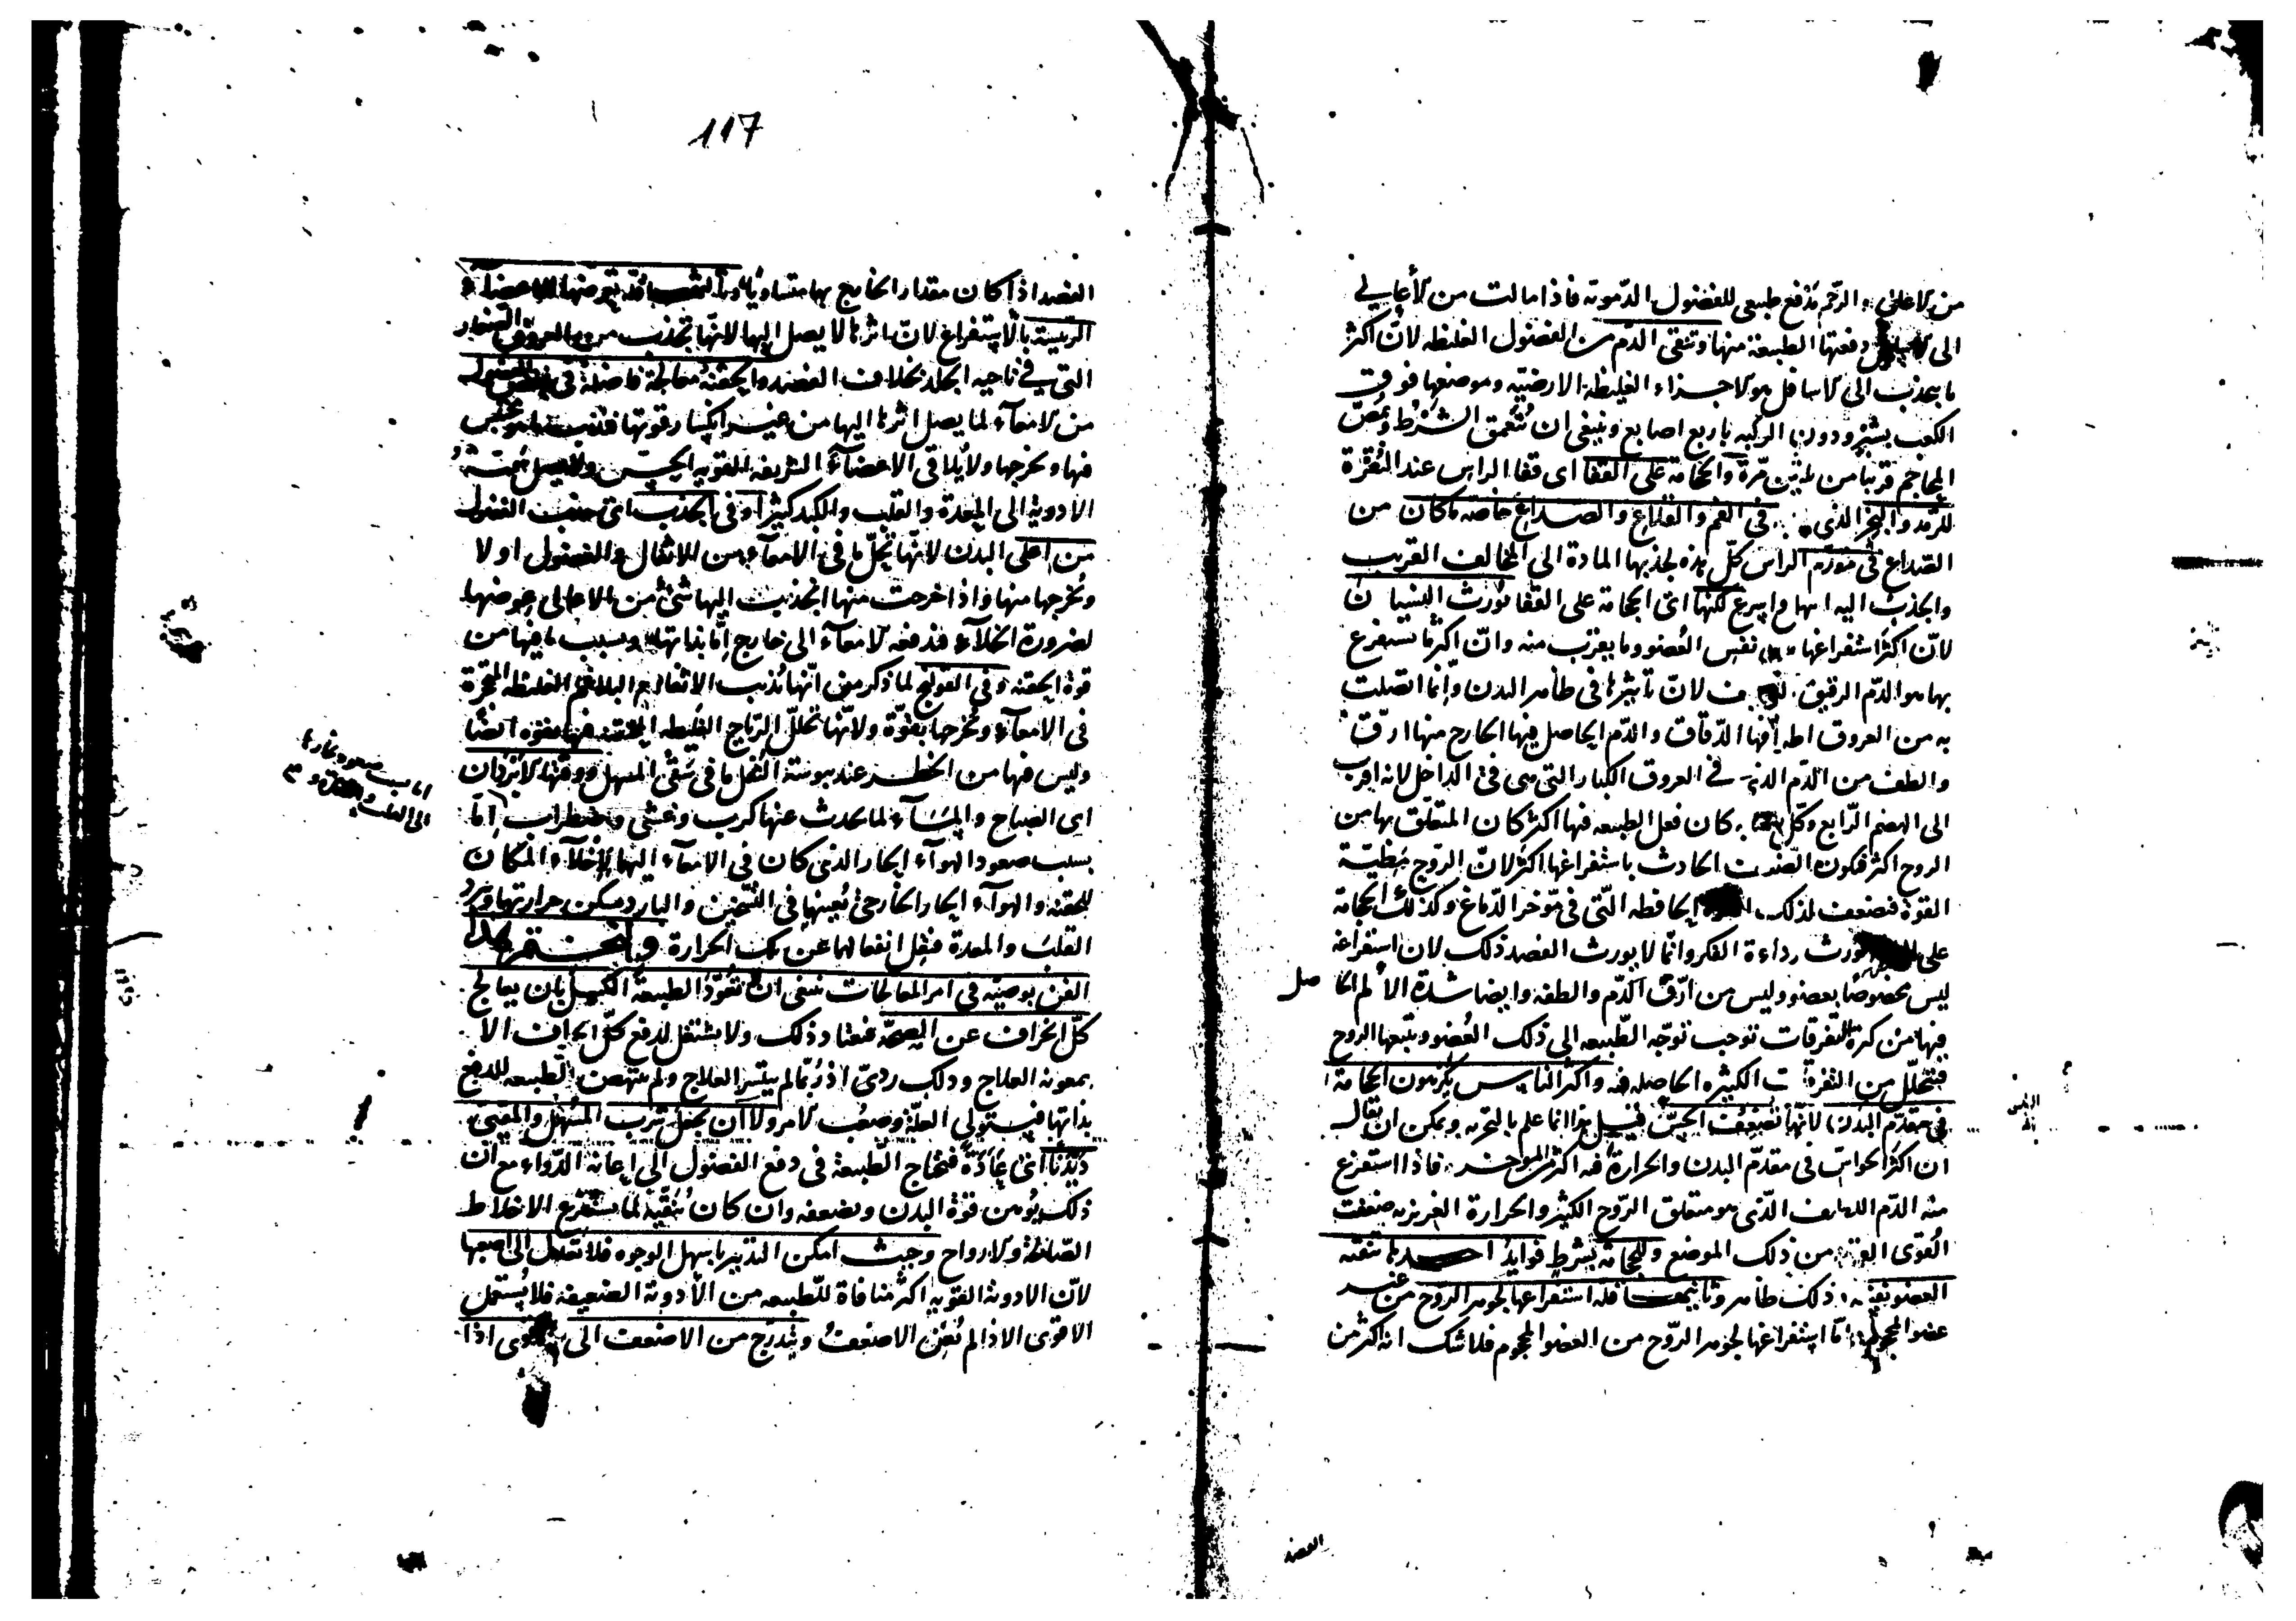 من الاعلى والرحم مدفع طبيعى للفضول الدّمويّة فاذا مالت من الأعالي
الى دفعتها الطبيعة منها وتنقى الدّم من الفضول الغليظه لانّ اكثر
ما ينجذب الى الاسافل هو الاجزاء الغليظة الارضيّه وموضعها فوق
الكعب بشبر ودون الركبه باربع اصابع وينبغى ان تُعمق الشرط ويُمصّ
المحاجم قريبًا من مرّة والحجامة على القفا اى قفا الراس عند النُقرة
للرّمد والبخر الذى فى الفم والقلاع والصداع خاصّه ما كان من
الصّداع فى مقدّم الراس كلّ هذه لجذبها المادة الى المخالف القريب
والجذب اليه اسهل واسرع لكنّها اى الحجامة على القفا تُورث النسيان
لانّ اكثر استفراغها من نفس العُضو وما يقرب منه وانّ اكثر ما تستفرغ
بها هو الدّم الرقيق لانّ تاثيرها فى ظاهر البدن وانّما اتّصلت
به من العروق اطرافها الدّقاق والدّم الحاصل فيها الخارج منها ارقّ
والطف من الدّم الذى فى العروق الكبار التى هى فى الداخل لانه اقرب
الى الهضم الرّابع وكلّ كان فعل الطبيعه فيها اكثر كان المتعلّق بها من
الروح اكثر فيكون الضّعف الحادث باستفراغها اكثر لانّ الرّوح مَطيّة
القوّة فتضعف لذلك الحافظه الّتى فى مؤخر الدّماغ وكذلك الحجامة
على تورث رداءة الفكر وانّما لا يورث الفصد ذلك لان استفراغه
ليس مخصوصًا بعضو وليس من ارّق الدّم والطفه وايضا شدة الألم الحاصل
فيها من كثرة التفرقات توجب توجّه الطّبيعه الى ذلك العُضو ويتبعها الروح
فتتحلّل من التفرقات الكثيره الحاصله فيه واكثر الناس يكرهون الحجامة
فى مقدّم البدن لانّها تضعف الحسّ قيل هذا انما علم بالتجربه ويمكن ان يقال
ان اكثر الحواسّ فى مقدّم البدن والحرارة فيه اكثر من المؤخر فاذا استفرغ
منه الدّم اللطيف الّذى هو متعلق الرّوح الكثير والحرارة الغريزيه ضعفت
القُوى من ذلك الموضع وللحجامة بشرط فوايد احديها تنقيه
العضو نفسه وذلك ظاهر وثانيتها قلّة استفراغها لجوهر الرّوح من غير
عضو المحجوم امّا استفراغها لجوهر الرّوح من العضو المحجوم فلا شك انه اكثر من
الفصد
117
الفصد اذا كان مقدار الخارج بهما متساويًا وثالثتها قلّة تعرضها للاعضاء
الرّئيسة بالاستفراغ لانّ اثرها لا يصل اليها لانّها تجذب من العروق الصغار
التى فى ناحيه الجلد بخلاف الفصد والحقنة معالجة فاضلة فى
من الامعاء لما يصل اثرها اليها من غير انكسار قوتها فتذيب ما هو محتبس
فيها وتخرجها ولا يُلاقى الاعضاء الشريفه القويه الحسّ
الادوية الى المعدة والقلب والكبد كثيرًا وفى الجذب اى جذب الفضول
من اعلى البدن لانّها تحلّ ما فى الامعاء من الاثقال والفضول اولا
وتُخرجها منها واذا خرجت منها انجذبت اليها شئ من الاعالى عوضها
لضرورة الخلاء فتدفعه الامعاء الى خارج امّا بذاتها او بسبب ما فيها من
قوة الحقنه وفى القولنج لما ذكر من انّها تُذيب الاثفال والبلاغم الغليظه المتحجّرة
فى الامعاء وتُخرجها بقوّة ولانّها تحلّل الرّياح الغليظه المحتقنه فيها بقوّه ايضًا
وليس فيها من الخطر عند يبوسة الثفل ما فى سَقى المسهل ووقتها الابردان
اى الصباح والمسَاء لما يحدث عنها كرب وغشى واضطراب امّا
بسبب صعود الهواء الحار الذى كان فى الامعاء اليها لاخلاء المكان
للحقنه والهواء الحار الخارجى يُعينها فى التسخين والبارد يسكن حرارتها ويبرد
القلبَ والمعدة فيقل انفعالهما عن تلك الحرارة ولنختم هذا
الفن بوصيّه فى امر المعالجات ينبغى ان لا تُعوّدَ الطبيعة الكسل بان يعالج
كلّ انحراف عن الصحّة فتعتاد ذلك ولا يشتغل لدفع كلّ انحراف الا
بمعونه العلاج وذلك ردىّ اذ رُبّما لم يتيسّر العلاج ولم ينتهض الطّبيعه للدفع
بذاتها فيستولى العلّة وصعُب الامر ولا ان يجعل شُرب المُسهل والمقيئ
دَيدَنًا اى عَادَةً فتحتاج الطّبيعة فى دفع الفضول الى اعانة الدّواء مع ان
ذلك يُوهن قوة البدن ويضعفه وان كان يُنقّيه لما يستفرغ الاخلاط
الصّالحة والارواح وحيث امكن التدبير باسهل الوجوه فلا تعدل الى اصعبها
لانّ الادوية القويه اكثر منافاة للطّبيعه من الأدوية الضعيفه فلا يُستعمل
الاقوى الا اذا لم يُغن الاضعفُ ويُتدرّج من الاضعف الى الاقوى اذا